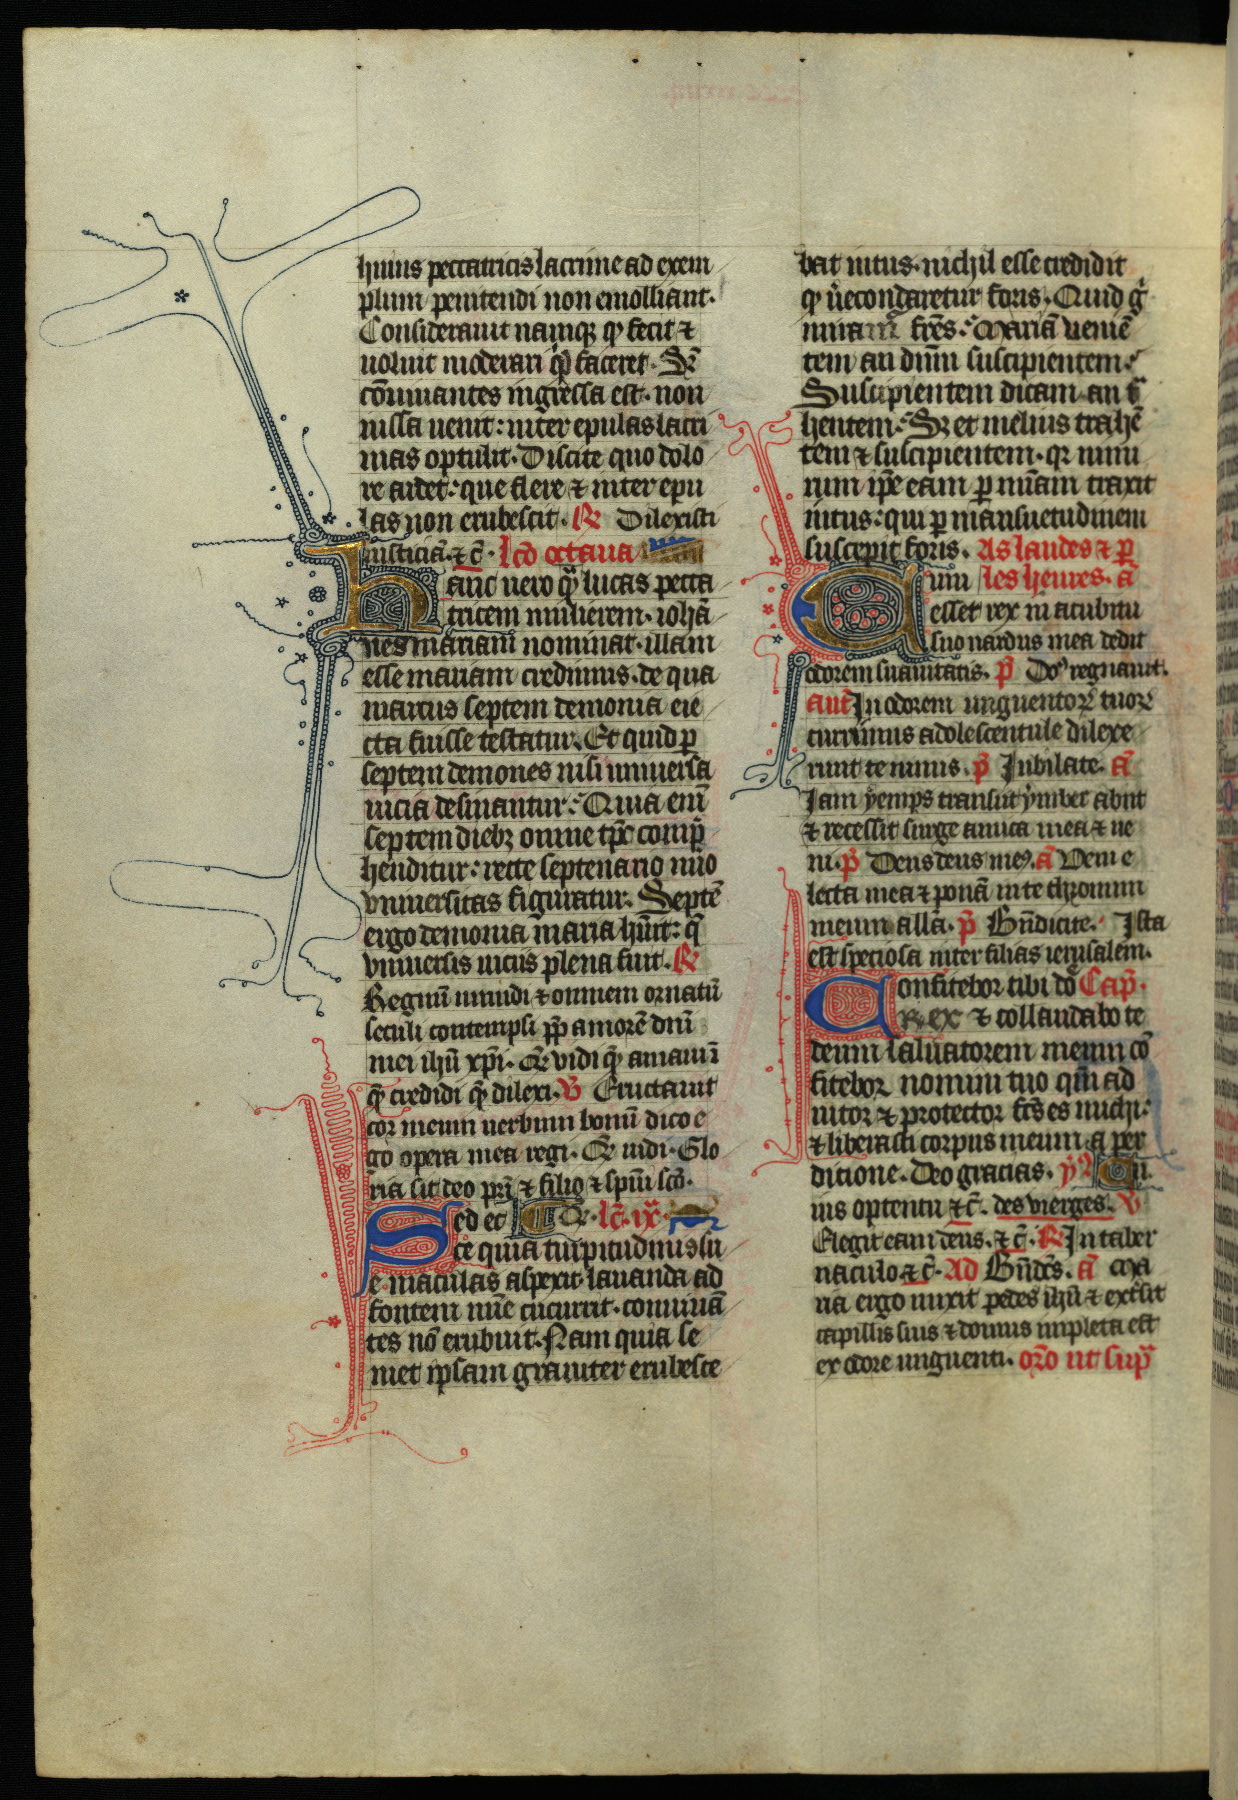 huius peccatricis lacrime ad exem
plum penitendi non emolliant.
Considerauit namq; qͥ fecit ⁊
noluit moderari qͩ faceret. Sꝫ
cōuiuantes ingressa est. non
iussa uenit: inter epulas lacri
mas optulit. Discite quo dolo
re ardet: que flere ⁊ inter epu
las non erubescit. ℟ Dilexisti
iusticiā. ⁊ c̄. lcō octaua
Hanc uero qͣ lucas pecca
tricem mulierem. iohā
nes mariam nominat. illam
esse mariam credimus. de qua
marcus septem demonia eie
cta fuisse testatur. Et quid ꝑ
septem demones nisi uniuersa
uicia desinantur: Quia enī
septem diebꝫ omne tp̄s comp̄
henditur: recte septenario nūo
vniuersitas figuratur. Septē
ergo demonia maria hūit: q̄
vniuersis uiciis plena fuit. ℟
Regnū mundi ⁊ omnem ornatū
seculi contempsi pp̄ amorē dn̄i
mei ihū xp̄i. Quē vidi quē amaui
quē credidi quē dilexi. ℣ Eructauit
cor meum uerbum bonū dico e
go opera mea regi. Quē uidi. Glo
ria sit deo pr̄i ⁊ filio ⁊ spū scō.
Sed ec Quē. lc̄. ix.
ce quia turpitudinis su
e maculas aspexit. lauanda ad
fontem mīe cucurrit. conuiuā
tes nō erubuit. Nam quia se
met ipsam grauiter erubesce
bat intus. nichil esse credidit
qͩ ūecondaretur foris. Quid gͦ
miram̄ frēs: Mariā ueniē
tem an dnm̄ suscipientem:
Suscipientem dicam an tͣ
hentem: Sꝫ et melius trahē
tem ⁊ suscipientem. qꝛ nimi
rum ip̄e eam ꝑ mīam traxit
intus: qui ꝑ mansuetudinem
suscepit foris. As laudes ⁊ ꝑ
Cum les heures. ā
esset rex in acubitu
suo nardus mea dedit
odorem suauitatis. p̄ Dn̄s regnauit.
ant̄ In odorem unguentoꝝ tuoꝝ
currimus adolescentule dilexe
runt te nimis. p̄ Jubilate. ā
Jam yemps transiit ymber abiit
⁊ recessit surge amica mea ⁊ ue
ni. p̄ Deus deus meꝰ. ā Veni e
lecta mea ⁊ ponā in te thronum
meum allā. p̄ Bn̄dicite. Ista
est speciosa inter filias ierusalem.
Confitebor tibi dn̄e Cap̄.
Rex ⁊ collaudabo te
deum saluatorem meum cō
fitebor nomini tuo qm̄ ad
iutor ⁊ protector fcūs es michi:
⁊ liberasti corpus meum a per
ditione. Deo gracias. yͫ Cu
ius optentu ⁊ c̄. des vierges. ℣
Elegit eam deus. ⁊ c̄. ℟ In taber
naculo. ⁊ c̄. Ad Bn̄dcūs. ā Ma
ria ergo unxit pedes ihū ⁊ extsit
capillis suis ⁊ domus impleta est
ex odore unguenti. orō ut supͣ